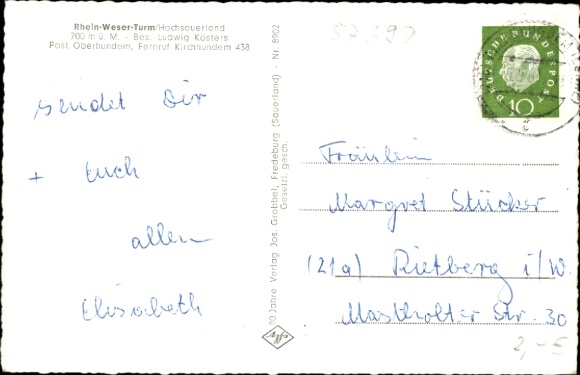 Rhein-Weser-Turm/Hochsauerland
700 m ü. M. - Bes. Ludwig Kösters
Post Oberhundem, Fernruf Kirchhundem 438
sendet Dir
+ Euch
allen
Elisabeth
20 Jahre Verlag Jos. Grobbel, Fredeburg (Sauerland) - Nr. 8902
Gesetzl. gesch.
DEUTSCHE BUNDESPOST
10
Fräulein
Margret Stücker
(21a) Rietberg i/W.
Mastholter Str. 30
2,- €